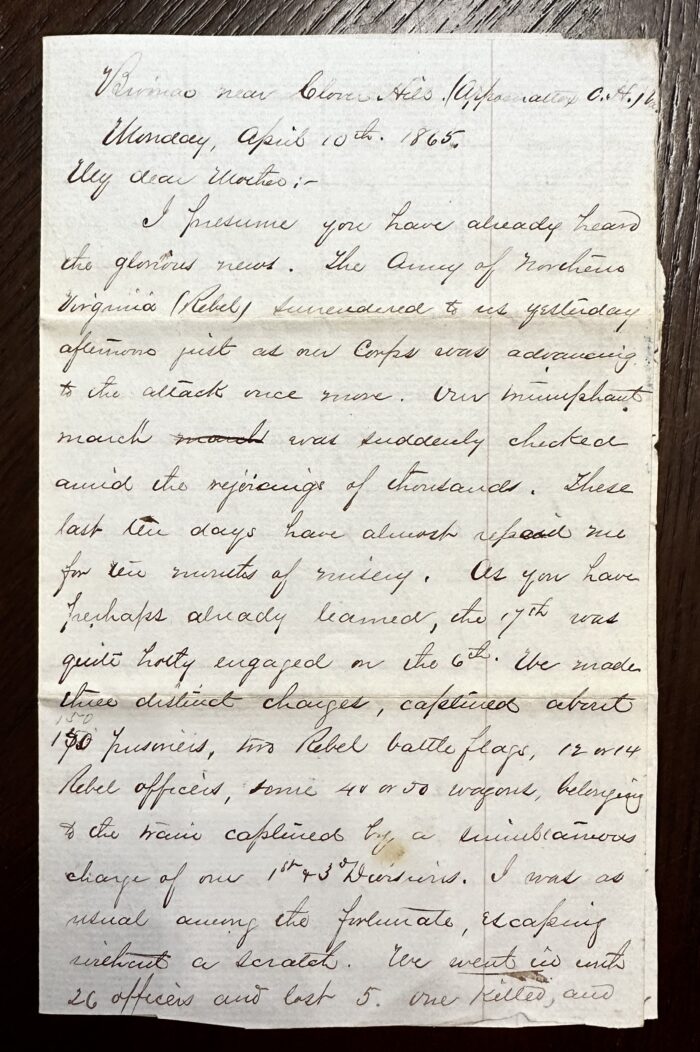 Bivouac near Clover Hill (Appomattox C. H.) Va.
Monday, April 10th. 1865.
My dear Mother:-
I presume you have already heard
the glorious news. The Army of Northern
Virginia (Rebel) surrendered to us yesterday
afternoon just as our Corps was advancing
to the attack once more. Our triumphant
march march was suddenly checked
amid the rejoicings of thousands. These
last ten days have almost repaid me
for ten months of misery. As you have
perhaps already learned, the 17th was
quite hotly engaged on the 6th. We made
three distinct charges, captured about
150
150 prisoners, two Rebel battle flags, 12 or 14
Rebel officers, some 40 or 50 wagons, belonging
to the train captured by a simultaneous
charge of our 1st & 3d Divisions. I was as
usual among the fortunate, escaping
without a scratch. We went in with
26 officers and lost 5. One killed, and